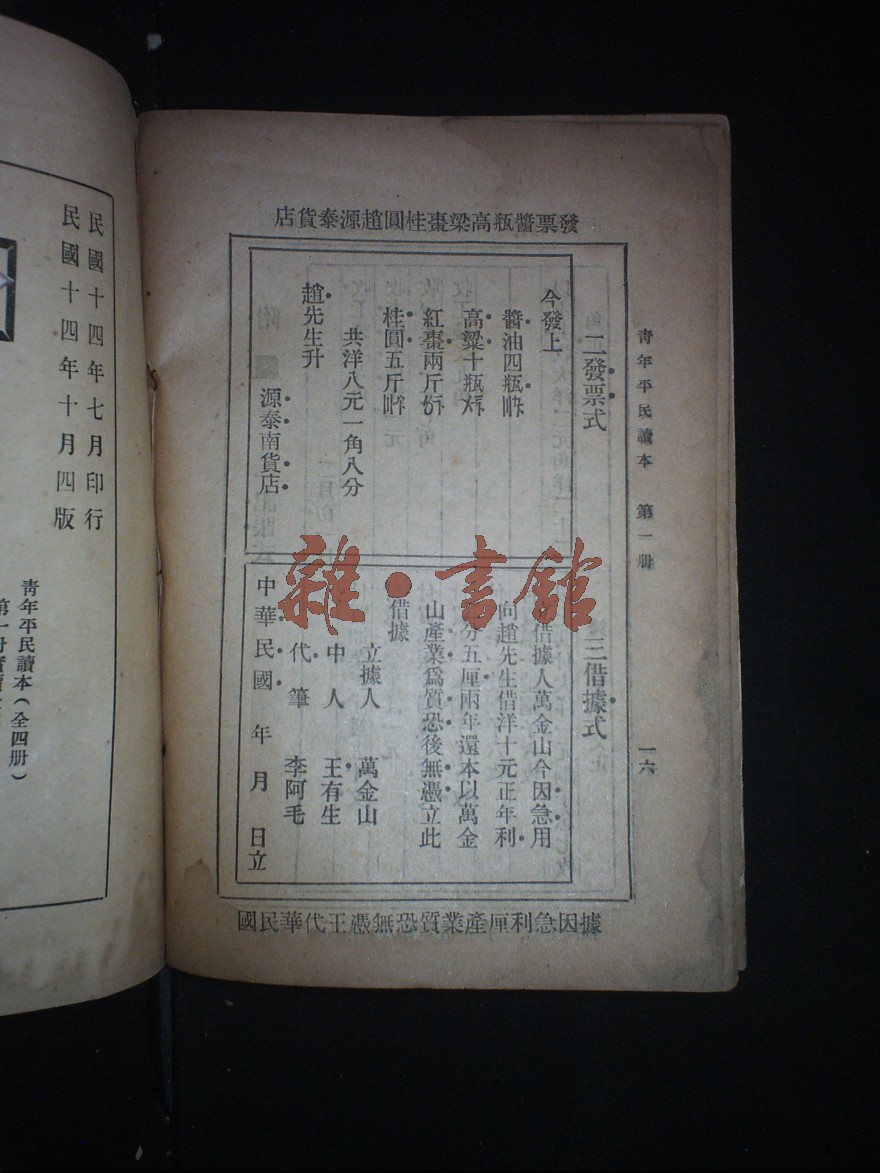 發票醬瓶高粱棗桂圓趙源泰貨店
青年平民讀本 第一册
一六
二發票式
今發上
醬油四瓶
高粱十瓶
紅棗兩斤
桂圓五斤
共洋八元一角八分
趙先生升
源泰南貨店
三借據式
借據人萬金山今因急用
向趙先生借洋十元正年利
分五厘兩年還本以萬金
山產業爲質恐後無憑立此
借據
立據人 萬金山
中人 王有生
代筆 李阿毛
中華民國 年 月 日立
據因急利厘產業質恐無憑王代華民國
雜·書館
民國十四年七月印行
民國十四年十月四版
青年平民讀本(全四册)